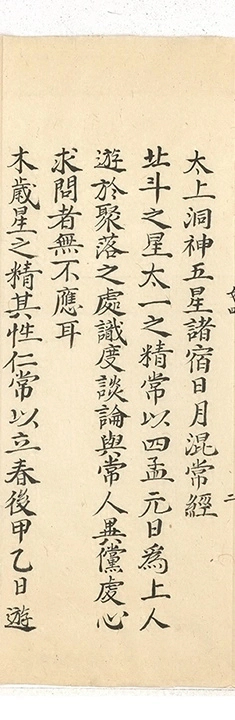 太上洞神五星諸宿日月混常經
北斗之星太一之精常以四孟元日為上人
遊於聚落之處識度談論與常人異儻虔心
求問者無不應耳
木歲星之精其性仁常以立春後甲乙日遊